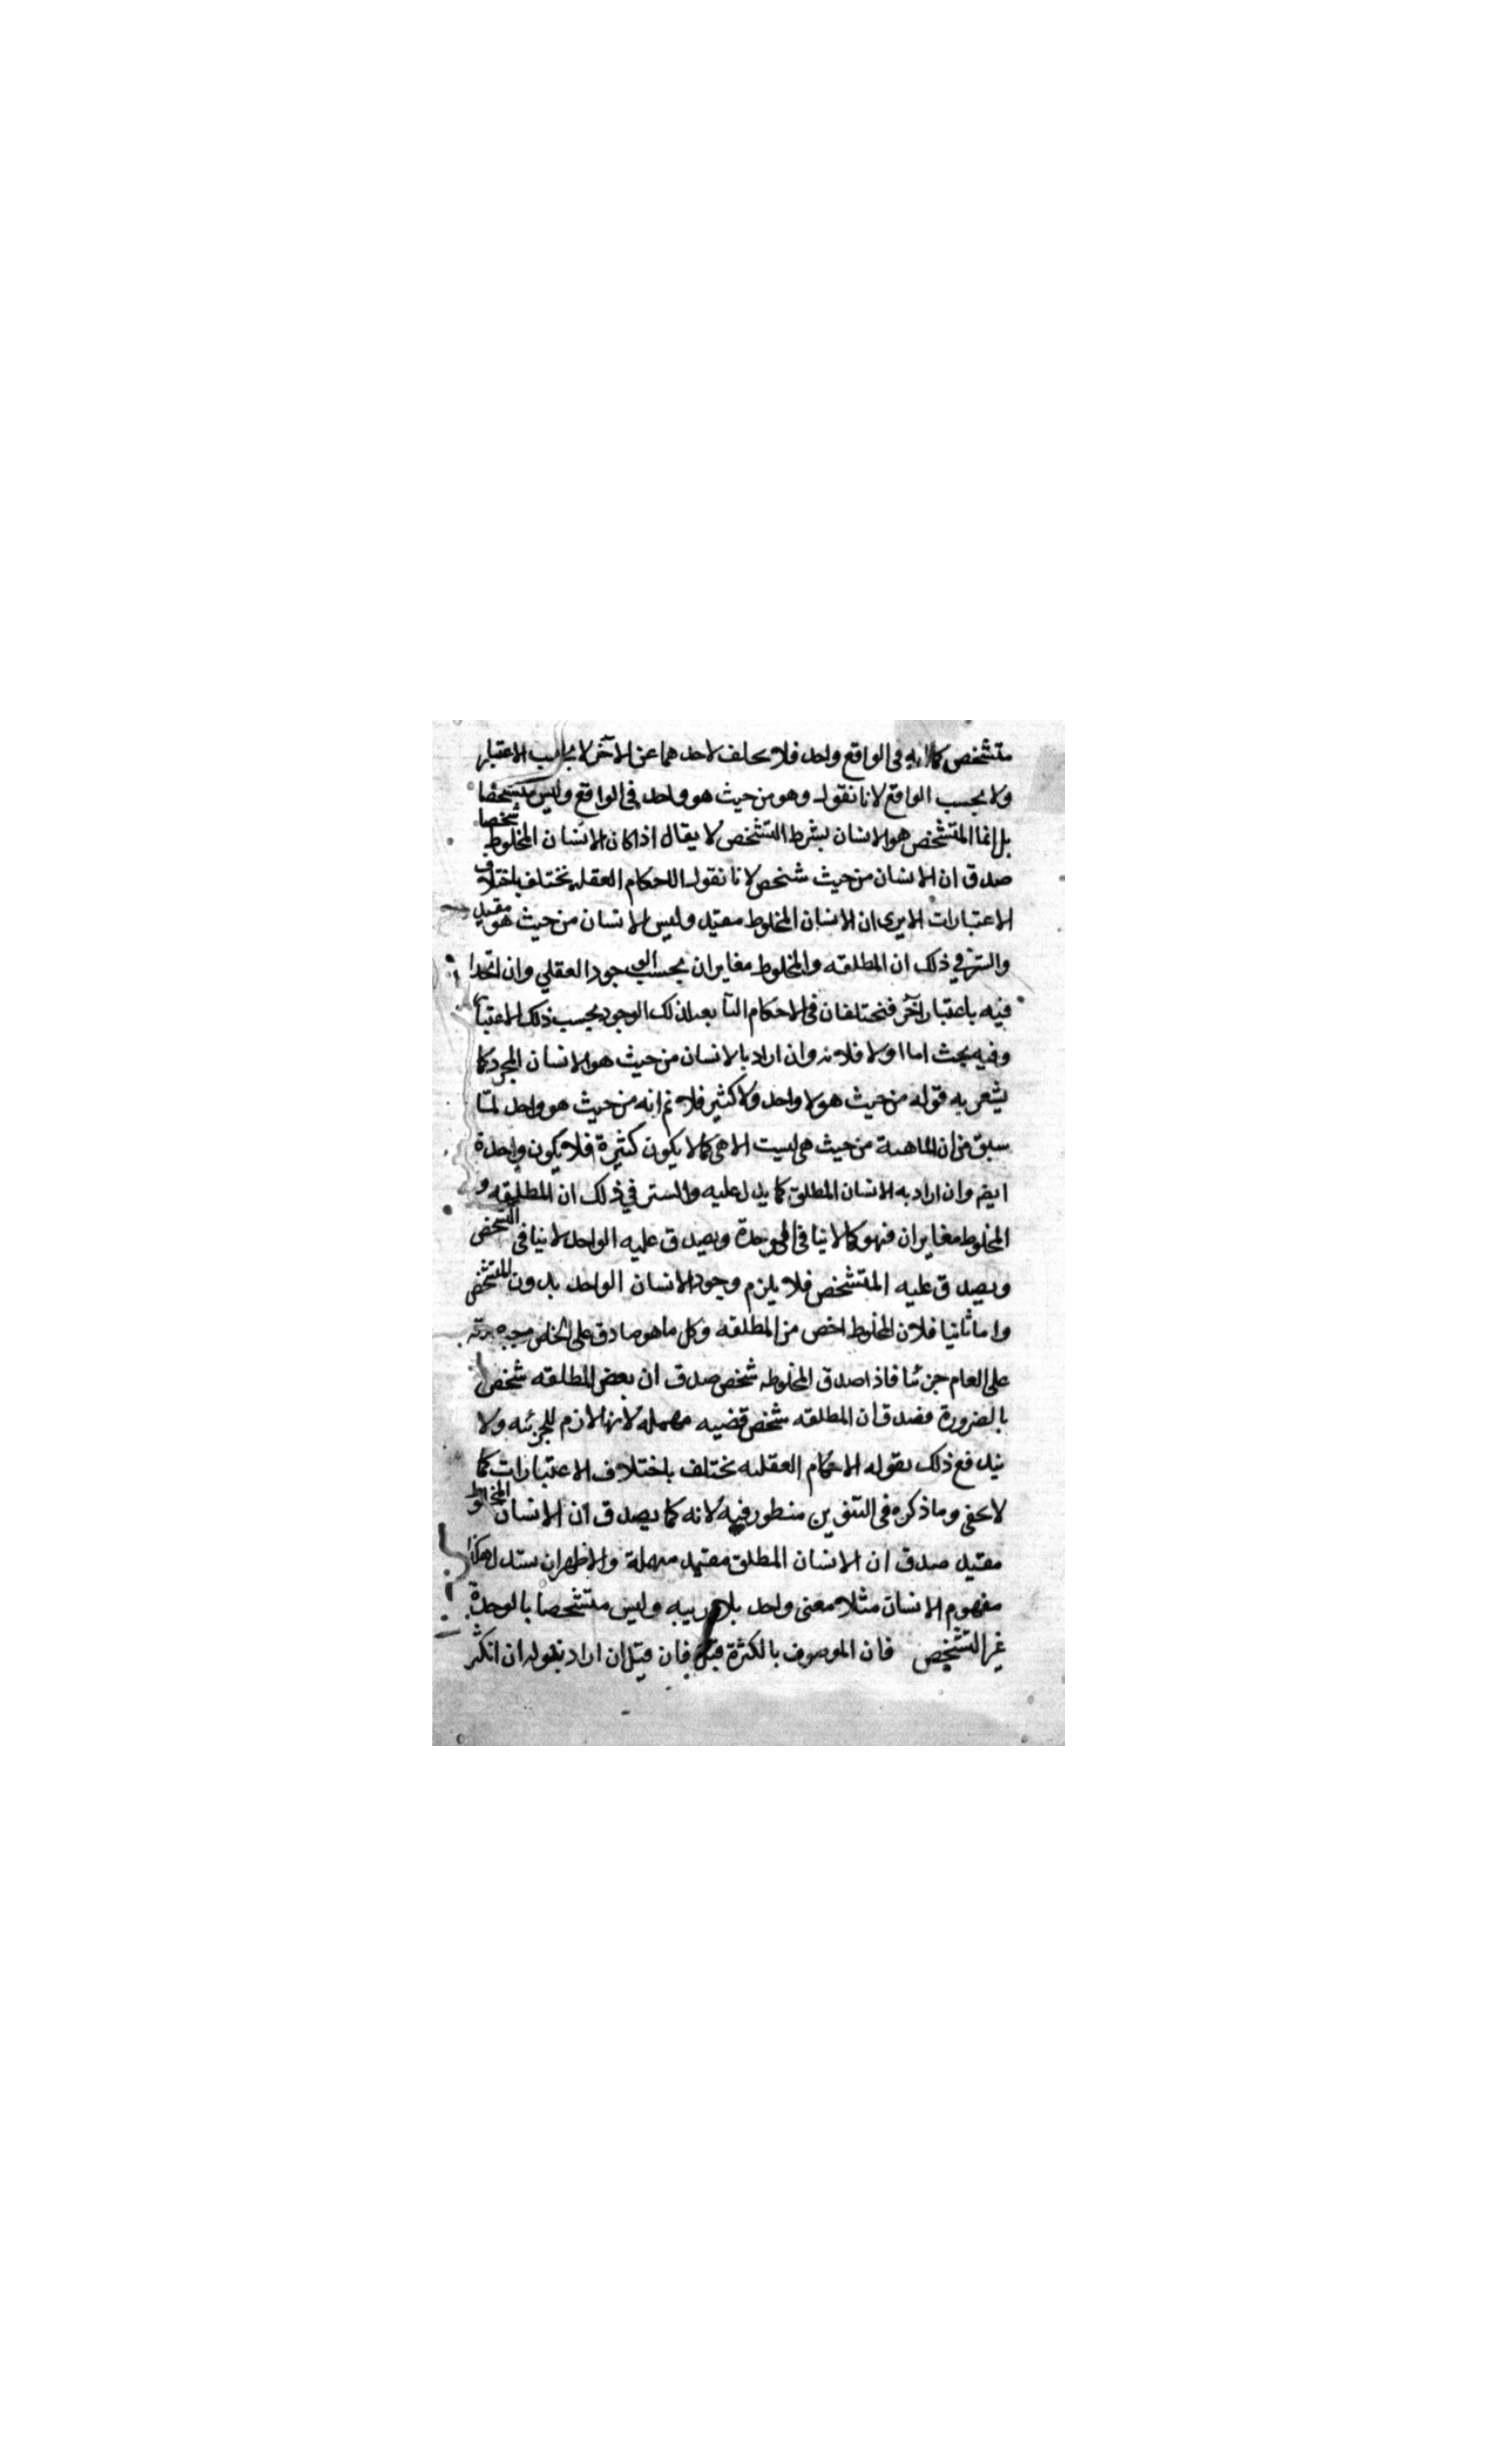 متشخص كما انه فى الواقع واحد فلا تخلف لاحدهما عن الآخر لا بحسب الاعتبار
ولا بحسب الواقع لانا نقول وهو من حيث هو واحد فى الواقع وليس متشخصا
بل انما المتشخص هو الانسان بشرط التشخص لا يقال اذا كان الانسان المخلوط شخصا
صدق ان الانسان من حيث شخص لانا نقول الاحكام العقليه تختلف باختلاف
الاعتبارات الا يرى ان الانسان المخلوط مقيد وليس الانسان من حيث هو مقيد
والسر في ذلك ان المطلقه والمخلوط مغايران بحسب الوجود العقلي وان اتحدا
فيه باعتبار آخر فتختلفان فى الاحكام التابعه لذلك الوجود بحسب ذلك الاعتبار
وفيه بحث اما اولا فلانه وان اراد بالانسان من حيث هو الانسان المجرد كما
يشعر به قوله من حيث هو لا واحد ولا كثير فلا نم انه من حيث هو واحد لما
سبق من ان الماهية من حيث هى ليست الا هى كما لا يكون كثيرة فلا يكون واحدة
ايضا وان اراد به الانسان المطلق كما يدل عليه والسر في ذلك ان المطلقه و
المخلوط مغايران فهو كما لا ينافى الوحدة ويصدق عليه الواحد لا ينافى التشخص
ويصدق عليه المتشخص فلا يلزم وجود الانسان الواحد بدون المتشخص
واما ثانيا فلان المخلوط اخص من المطلقه وكل ما هو صادق على الخاص يجب صدقه
على العام جزئيا فاذا صدق المخلوطه شخص صدق ان بعض المطلقه شخص
بالضرورة فصدق ان المطلقه شخص قضيه مهمله لانها لازم للجزئيه ولا
يندفع ذلك بقوله الاحكام العقليه تختلف باختلاف الاعتبارات كما
لا يخفى وما ذكره فى التنوير منظور فيه لانه كما يصدق ان الانسان المخلوط
مقيد صدق ان الانسان المطلق مقيد مهملة والاظهر ان يستدل هكذا
مفهوم الانسان مثلا معنى واحد بلا ريبه وليس متشخصا بالوحدة
غير التشخص فان الموصوف بالكثرة قيل فان قيل ان اراد بقوله ان الكثير